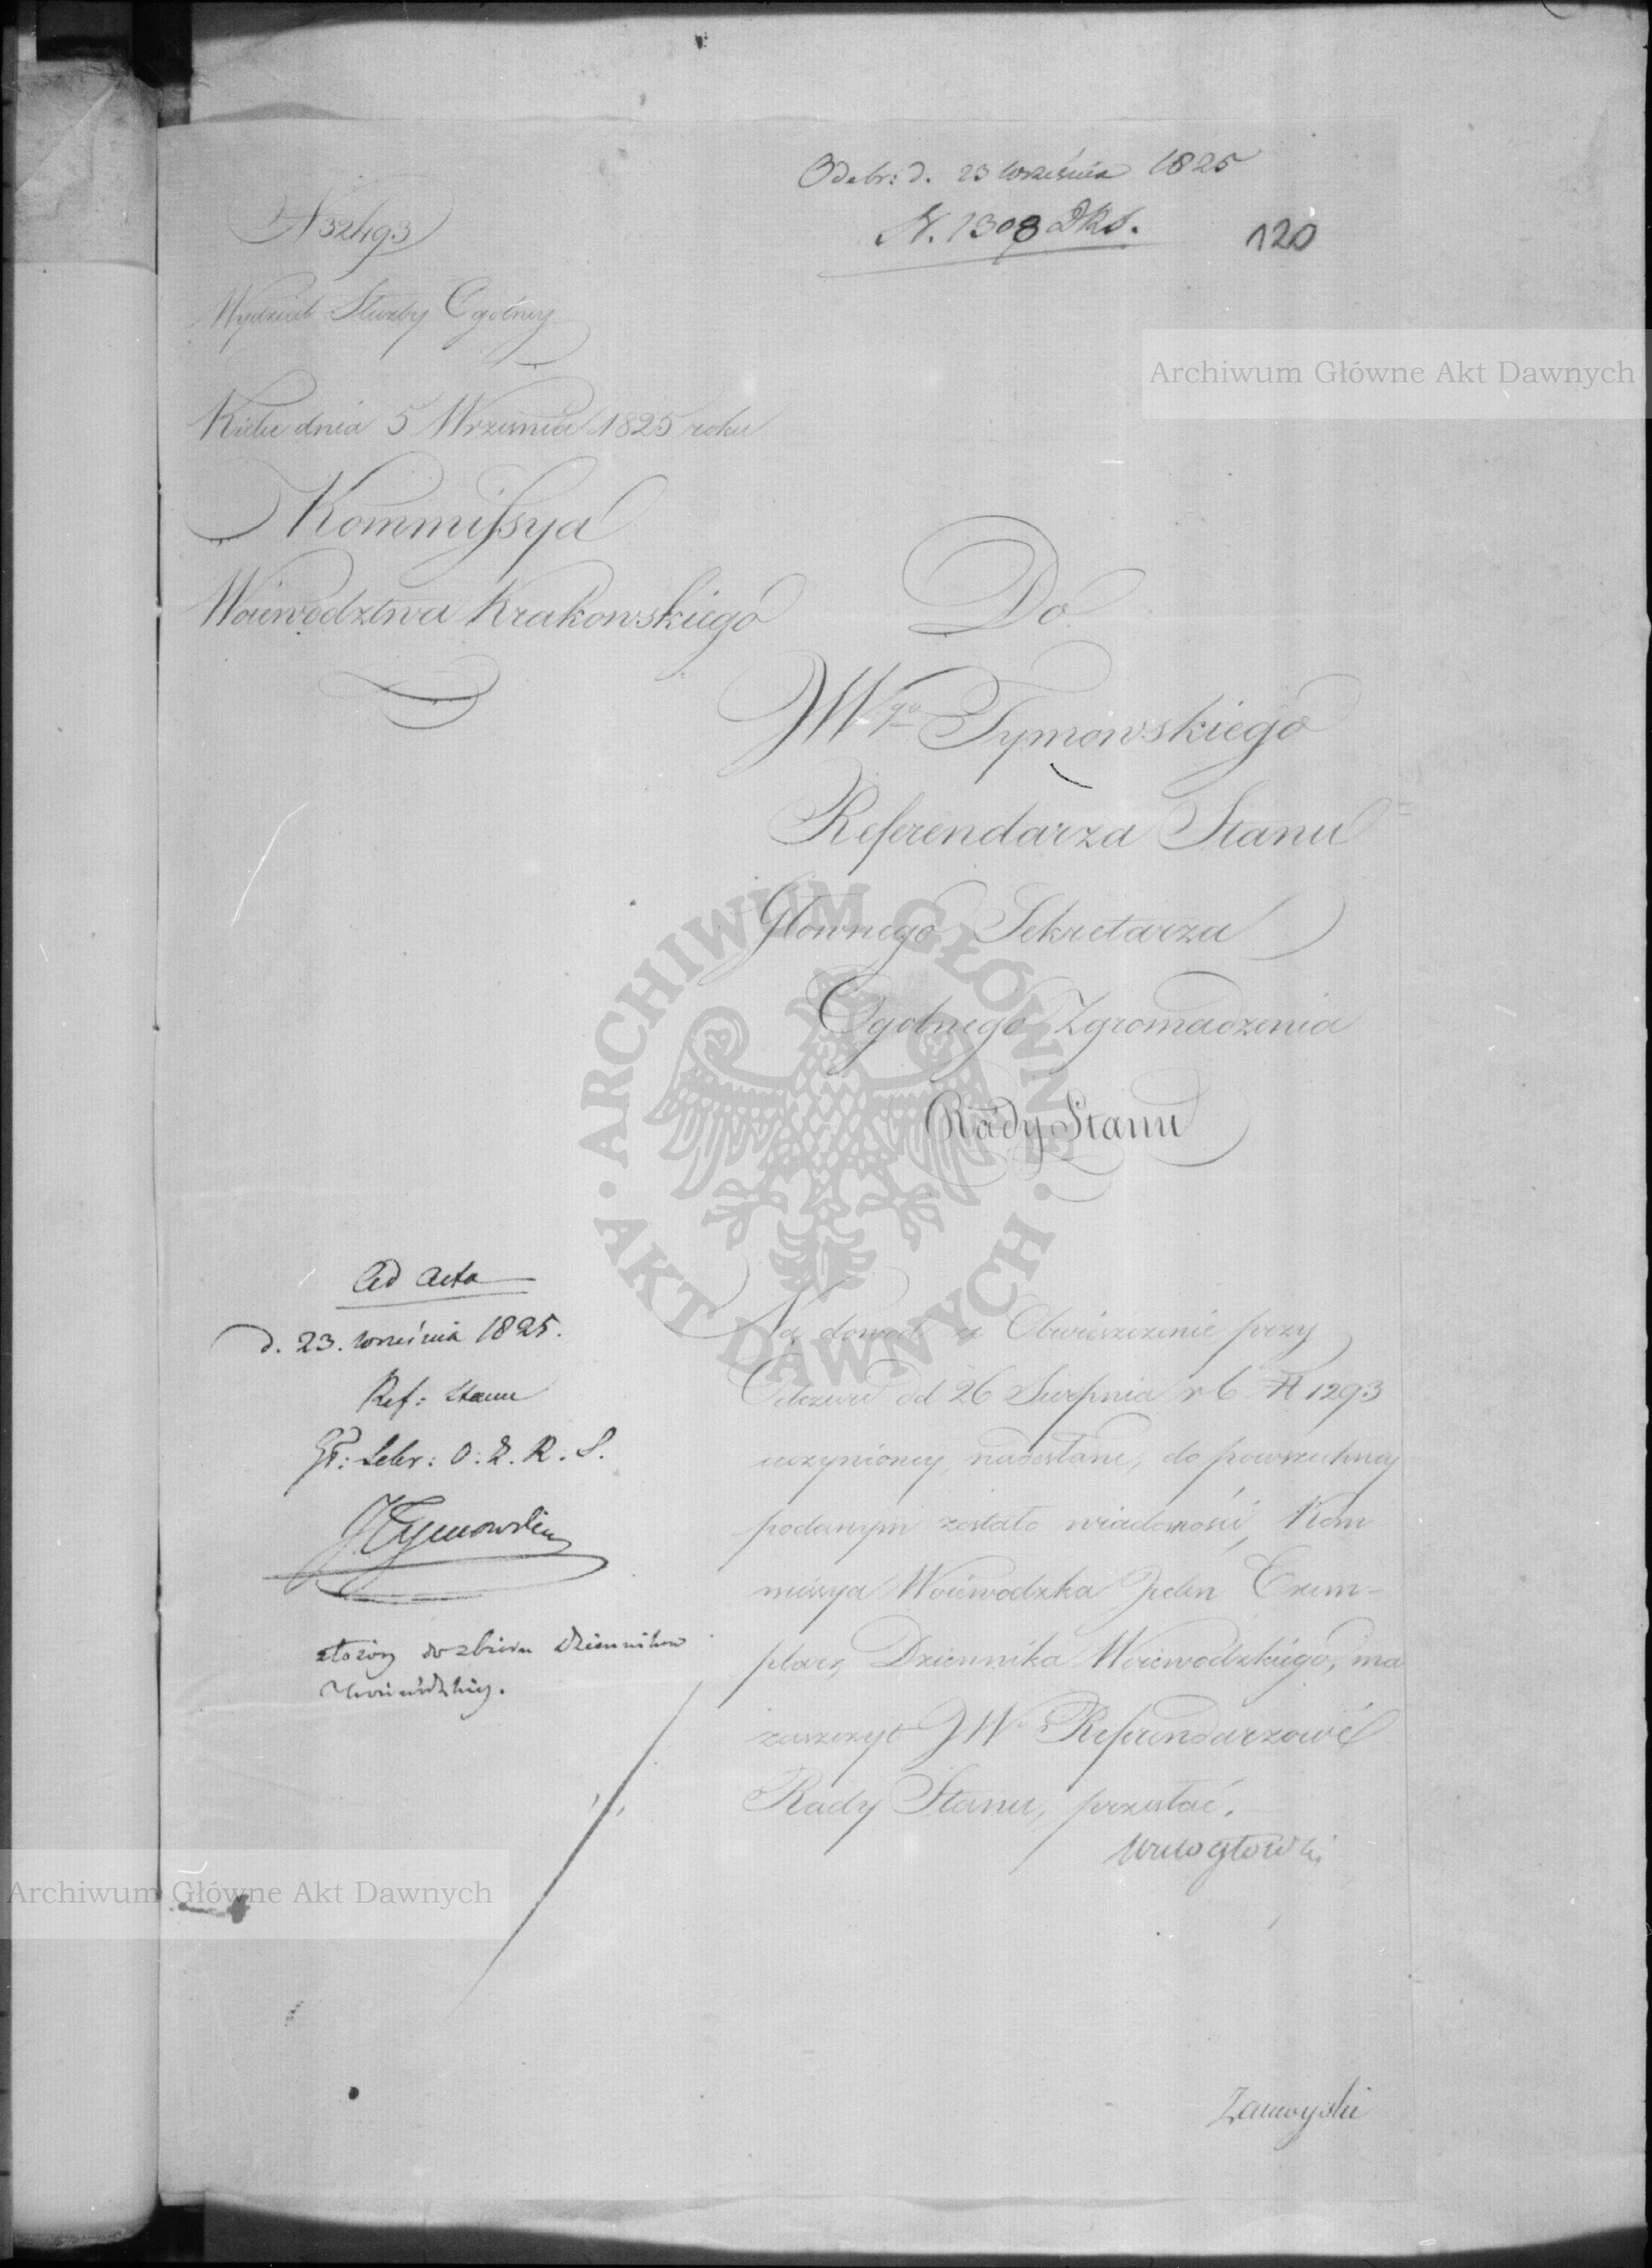 Odebr: d. 23 września 1825
N. 1308 DRS.
120
N 32493
Wydział Służby Ogólney
Kielce dnia 5 Września 1825 roku
Kommissya
Woiewodztwa Krakowskiego
Do
JWgo Tymowskiego
Referendarza Stanu
Głownego Sekretarza
Ogolnego Zgromadzenia
Rady Stanu
Ad acta
d. 23. września 1825.
Ref: Stanu
Gł: Sekr: O. Z. R. S.
JTymowski
złożony do zbioru Dzienników
Woiewódzkich.
Na dowod że Obwieszczenie przy
Odezwie od 26 Sierpnia r b N 1293
uczynioney nadesłane, do powszechney
podanym zostało wiadomości, Kom
missya Woiewodzka Jeden Exem-
plarz Dziennika Woiewodzkiego, ma
zaszczyt JW Referendarzowi
Rady Stanu, przesłać.
Wielogłowski
Zamoyski
Archiwum Główne Akt Dawnych
Archiwum Główne Akt Dawnych
ARCHIWUM GŁÓWNE · AKT DAWNYCH ·